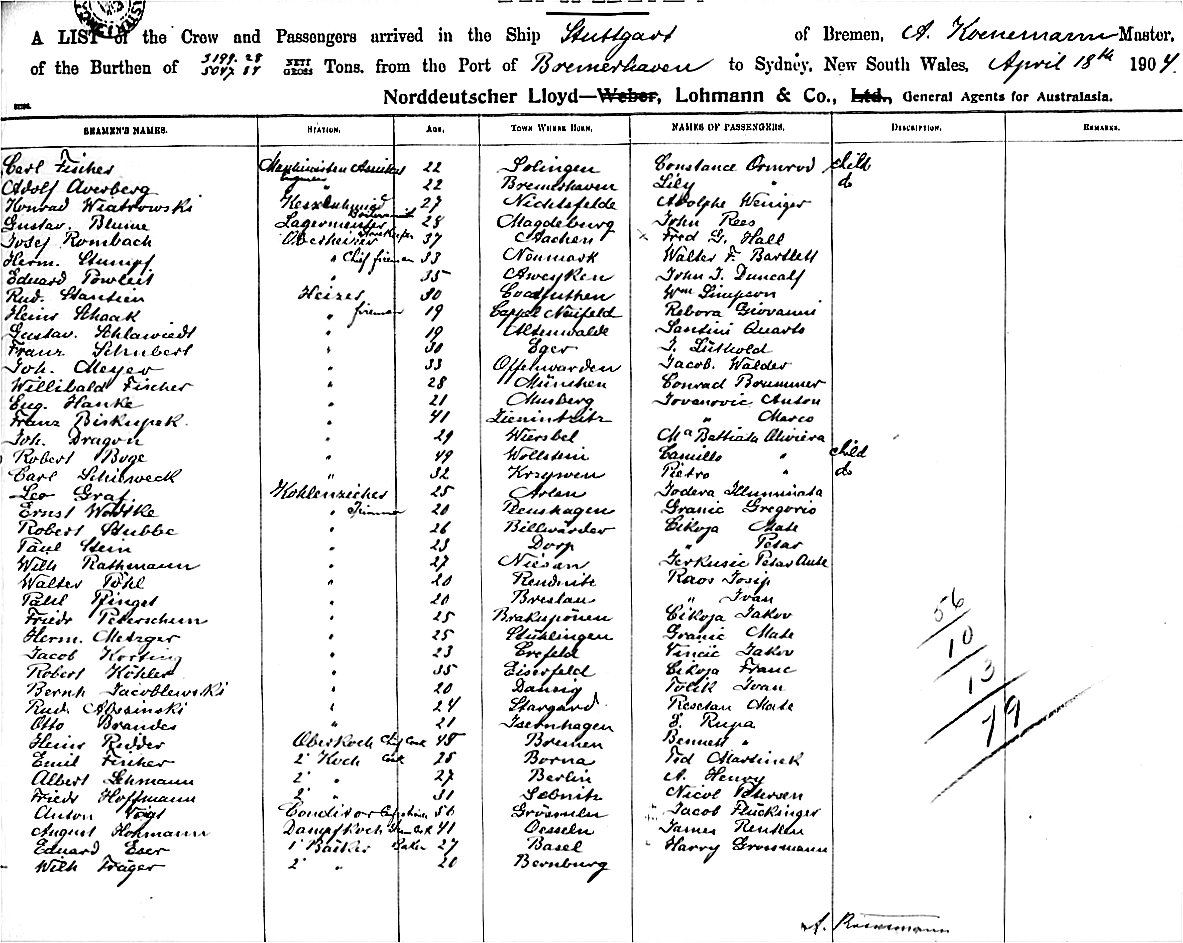 A LIST of the Crew and Passengers arrived in the Ship Stuttgart of Bremen, A. Koenemann Master,
of the Burthen of 3199.28 5047.84 NETT GROSS Tons, from the Port of Bremerhaven to Sydney, New South Wales, April 18th 1904.
Norddeutscher Lloyd—Weber, Lohmann & Co., Ltd., General Agents for Australasia.
SEAMEN'S NAMES. STATION. AGE. TOWN WHERE BORN. NAMES OF PASSENGERS. DESCRIPTION. REMARKS.
Carl Fischer 22 Solingen Constance Ormrod child
Adolf Averberg " 22 Bremerhaven Lily " do
Konrad Wiatrowski Kesselschmied 27 Nichtsfelde Adolphe Weniger
Gustav. Blume Lagermeister 28 Magdeburg John Rees
Josef Rombach Oberheizer Storekeeper 37 Aachen x Fred G. Hall
Herm. Stumpf " Chief fireman 33 Neumark Walter F. Bartlett
Eduard Powleit " 35 Aweyken John J. Duncalf
Rud. Stantien Heizer 30 Wm Simpson
Heinr Schaak " fireman 19 Cappel Neufeld Rebora Giovanni
Gustav. Schlawiedt " 19 Altenwalde Santini Quarto
Franz Schubert " 30 Eger J. Lüthold
Joh. Meyer " 33 Offenwarden Jacob. Walder
Willibald Fischer " 28 München Conrad Brummer
Eug. Hanke " 21 Musberg Jovanovic Anton
Franz Biskupek. " 41 " Marco
Joh. Dragon " 29 Wiersbel Ma Battista Oliviera
Robert Boge " 49 Wollstein Camillo " child
Carl Schirweck " 32 Krzywen Pietro " do
Leo Graf Kohlenzieher 25 Arlen Todera Illuminata
Ernst Wodtke " Trimmer 20 Granic Gregorio
Robert Stubbe " 26 Billwärder Cikoja Mate
Paul Stein " 23 Dorp " Petar
Wilh Rathmann " 27 Niesan Jerkusic Petar Ante
Walter Pöhl " 20 Reudnitz Raos Josip
Paul Ringel " 20 Breslau " Ivan
Friedr Peterschun " 25 Brakuponen Cikoja Jakov
Herm. Metzger " 25 Stühlingen Granic Mate
Jacob Korting " 23 Crefeld Vincic Jakov
Robert Köhler " 35 Eiserfeld Cikoja Franc
Bernh Jacoblewski " 20 Danzig Tolik Ivan
Rud. " 24 Stargard Resetan Mate
Otto Brandes " 21 Isernhagen S. Rupa
Heinr Redder Oberkoch Chief Cook 48 Bremen Bennett "
Emil Fischer 2' Koch Cook 25 Borna Ted Martinek
Albert Lehmann 2' " 27 Berlin A. Henry
Friedr Hoffmann 2' " 31 Sebnitz Nicol Petersen
Anton Voigt Conditor Confectioner 56 Jacob Flückinger
August Hohmann Dampfkoch 41 Oesseln James Renton
Eduard Eser 1' Bäcker Baker 27 Basel Harry Grossmann
Wilh Träger 2' " 20 Bernburg
56
10
13
79